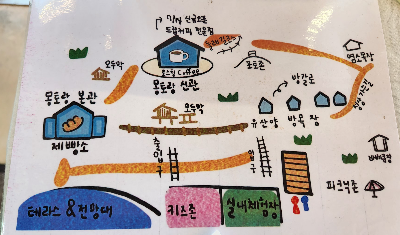 MN 산골오두
드립커피 전문점
오두막
몽토랑 Coffee
몽토랑 신관
포토존
염소목장
방갈로
몽토랑 본관
제빵소
오두막
유산양 방목장
출입구
입구
바베큐장
피크닉존
테라스 & 전망대
키즈존
실내체험장